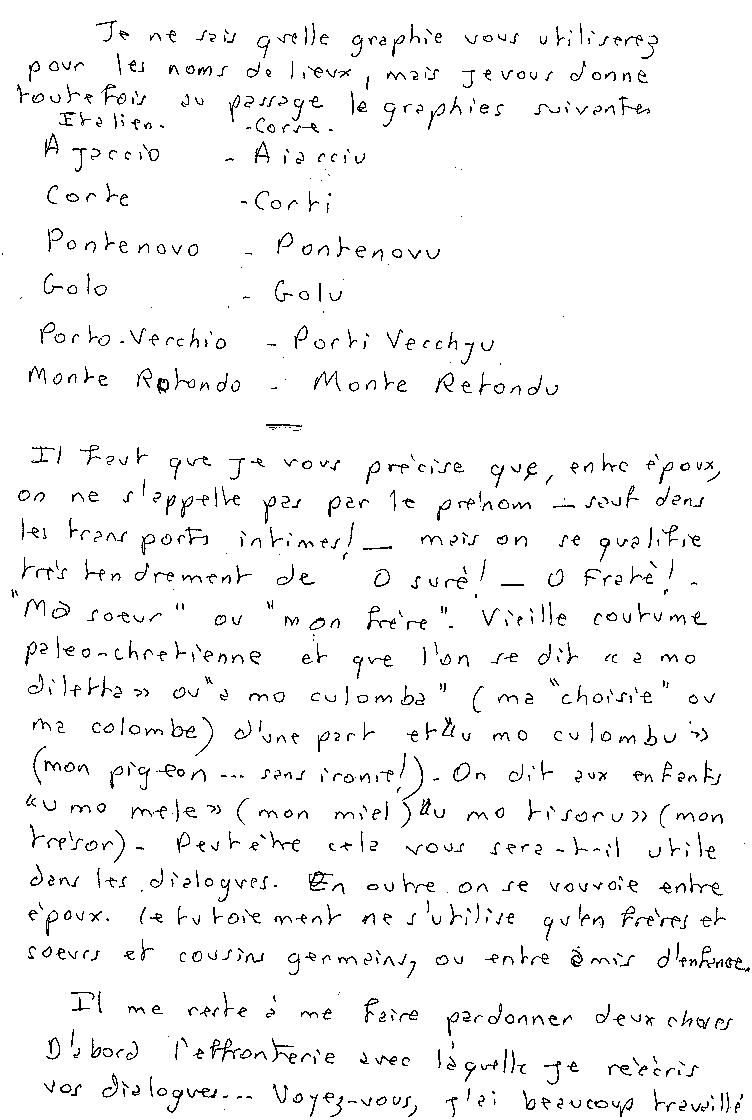 Je ne sais quelle graphie vous utiliserez
pour les noms de lieux, mais je vous donne
toutefois au passage le graphies suivantes
Italien. -Corse.
Ajaccio - Aiacciu
Corte -Corti
Pontenovo - Pontenovu
Golo - Golu
Porto-Vecchio - Porti Vecchju
Monte Rotondo - Monte Retondu
Il faut que je vous précise que, entre époux,
on ne s'appelle pas par le prénom — sauf dans
les transports intimes! — mais on se qualifie
très tendrement de O surè! — O Fratè! -
"Ma soeur" ou "mon frère". Vieille coutume
paleo-chretienne et que l'on se dit « a mo
diletta » ou "a mo culomba" (ma "choisie" ou
ma colombe) d'une part et «u mo culombu»
(mon pigeon... sans ironie!). On dit aux enfants
«u mo mele» (mon miel) «u mo tisoru» (mon
trésor) - Peut être cela vous sera-t-il utile
dans les dialogues. En outre on se vouvoie entre
époux. Le tutoiement ne s'utilise qu'en frères et
soeurs et cousins germains, ou entre amis d'enfance.
Il me reste à me faire pardonner deux choses
D'abord l'effronterie avec laquelle je réécris
vos dialogues... Voyez-vous, j'ai beaucoup travaillé